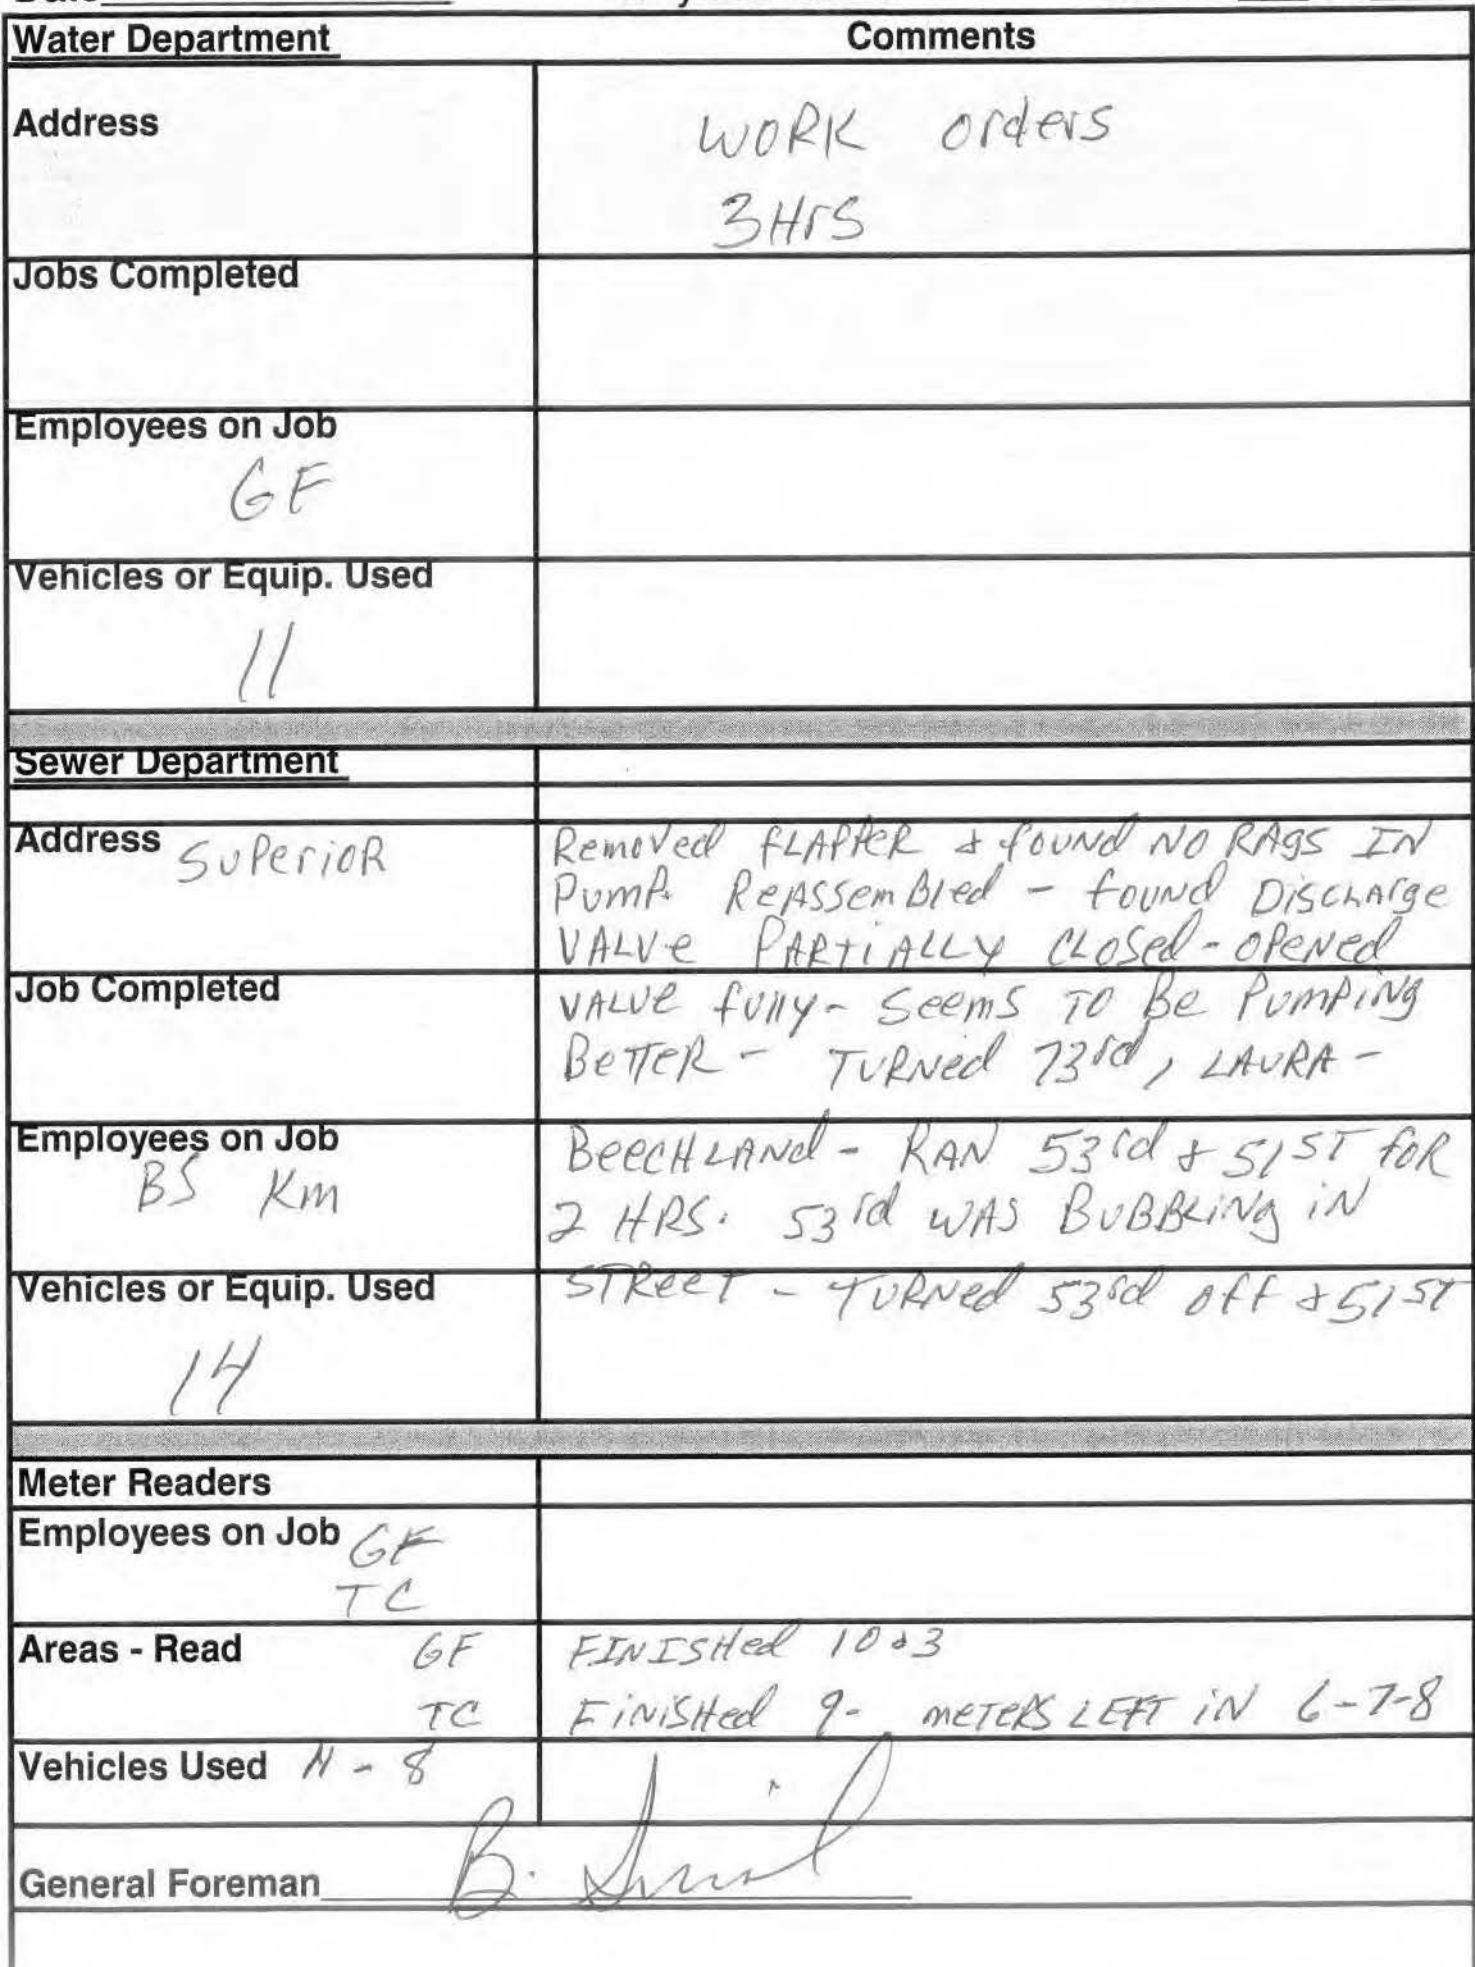 Water Department Comments
Address WORK orders
3 Hrs
Jobs Completed
Employees on Job
GF
Vehicles or Equip. Used
11
Sewer Department
Address SuPerioR Removed FLAPPER & found NO RAgs IN
Pump. ReAssemBled - found Discharge
VALVe PARTiALLY CLosed - OPeNed
Job Completed VALVe fully - Seems TO Be PumPiNg
BeTTeR - TURNed 73rd, LAURA -
Employees on Job BeecHLANd - RAN 53rd & 51ST foR
BS Km 2 HRS. 53rd WAS BUBBLiNg iN
Vehicles or Equip. Used STReeT - TURNed 53rd off & 51ST
14
Meter Readers
Employees on Job GF
TC
Areas - Read GF FINISHed 10 & 3
TC FiNiSHed 9- meTeRS LEFT iN 6-7-8
Vehicles Used 11 - 8
General Foreman B.